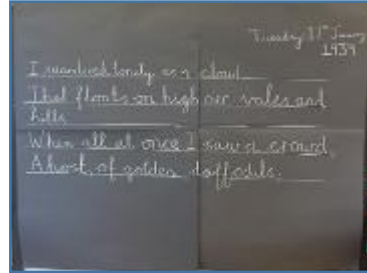 Tuesday 31st January
1939
I wandered lonely as a cloud
That floats on high oer vales and
hills
When all at once I saw a crowd
A host, of golden daffodils.